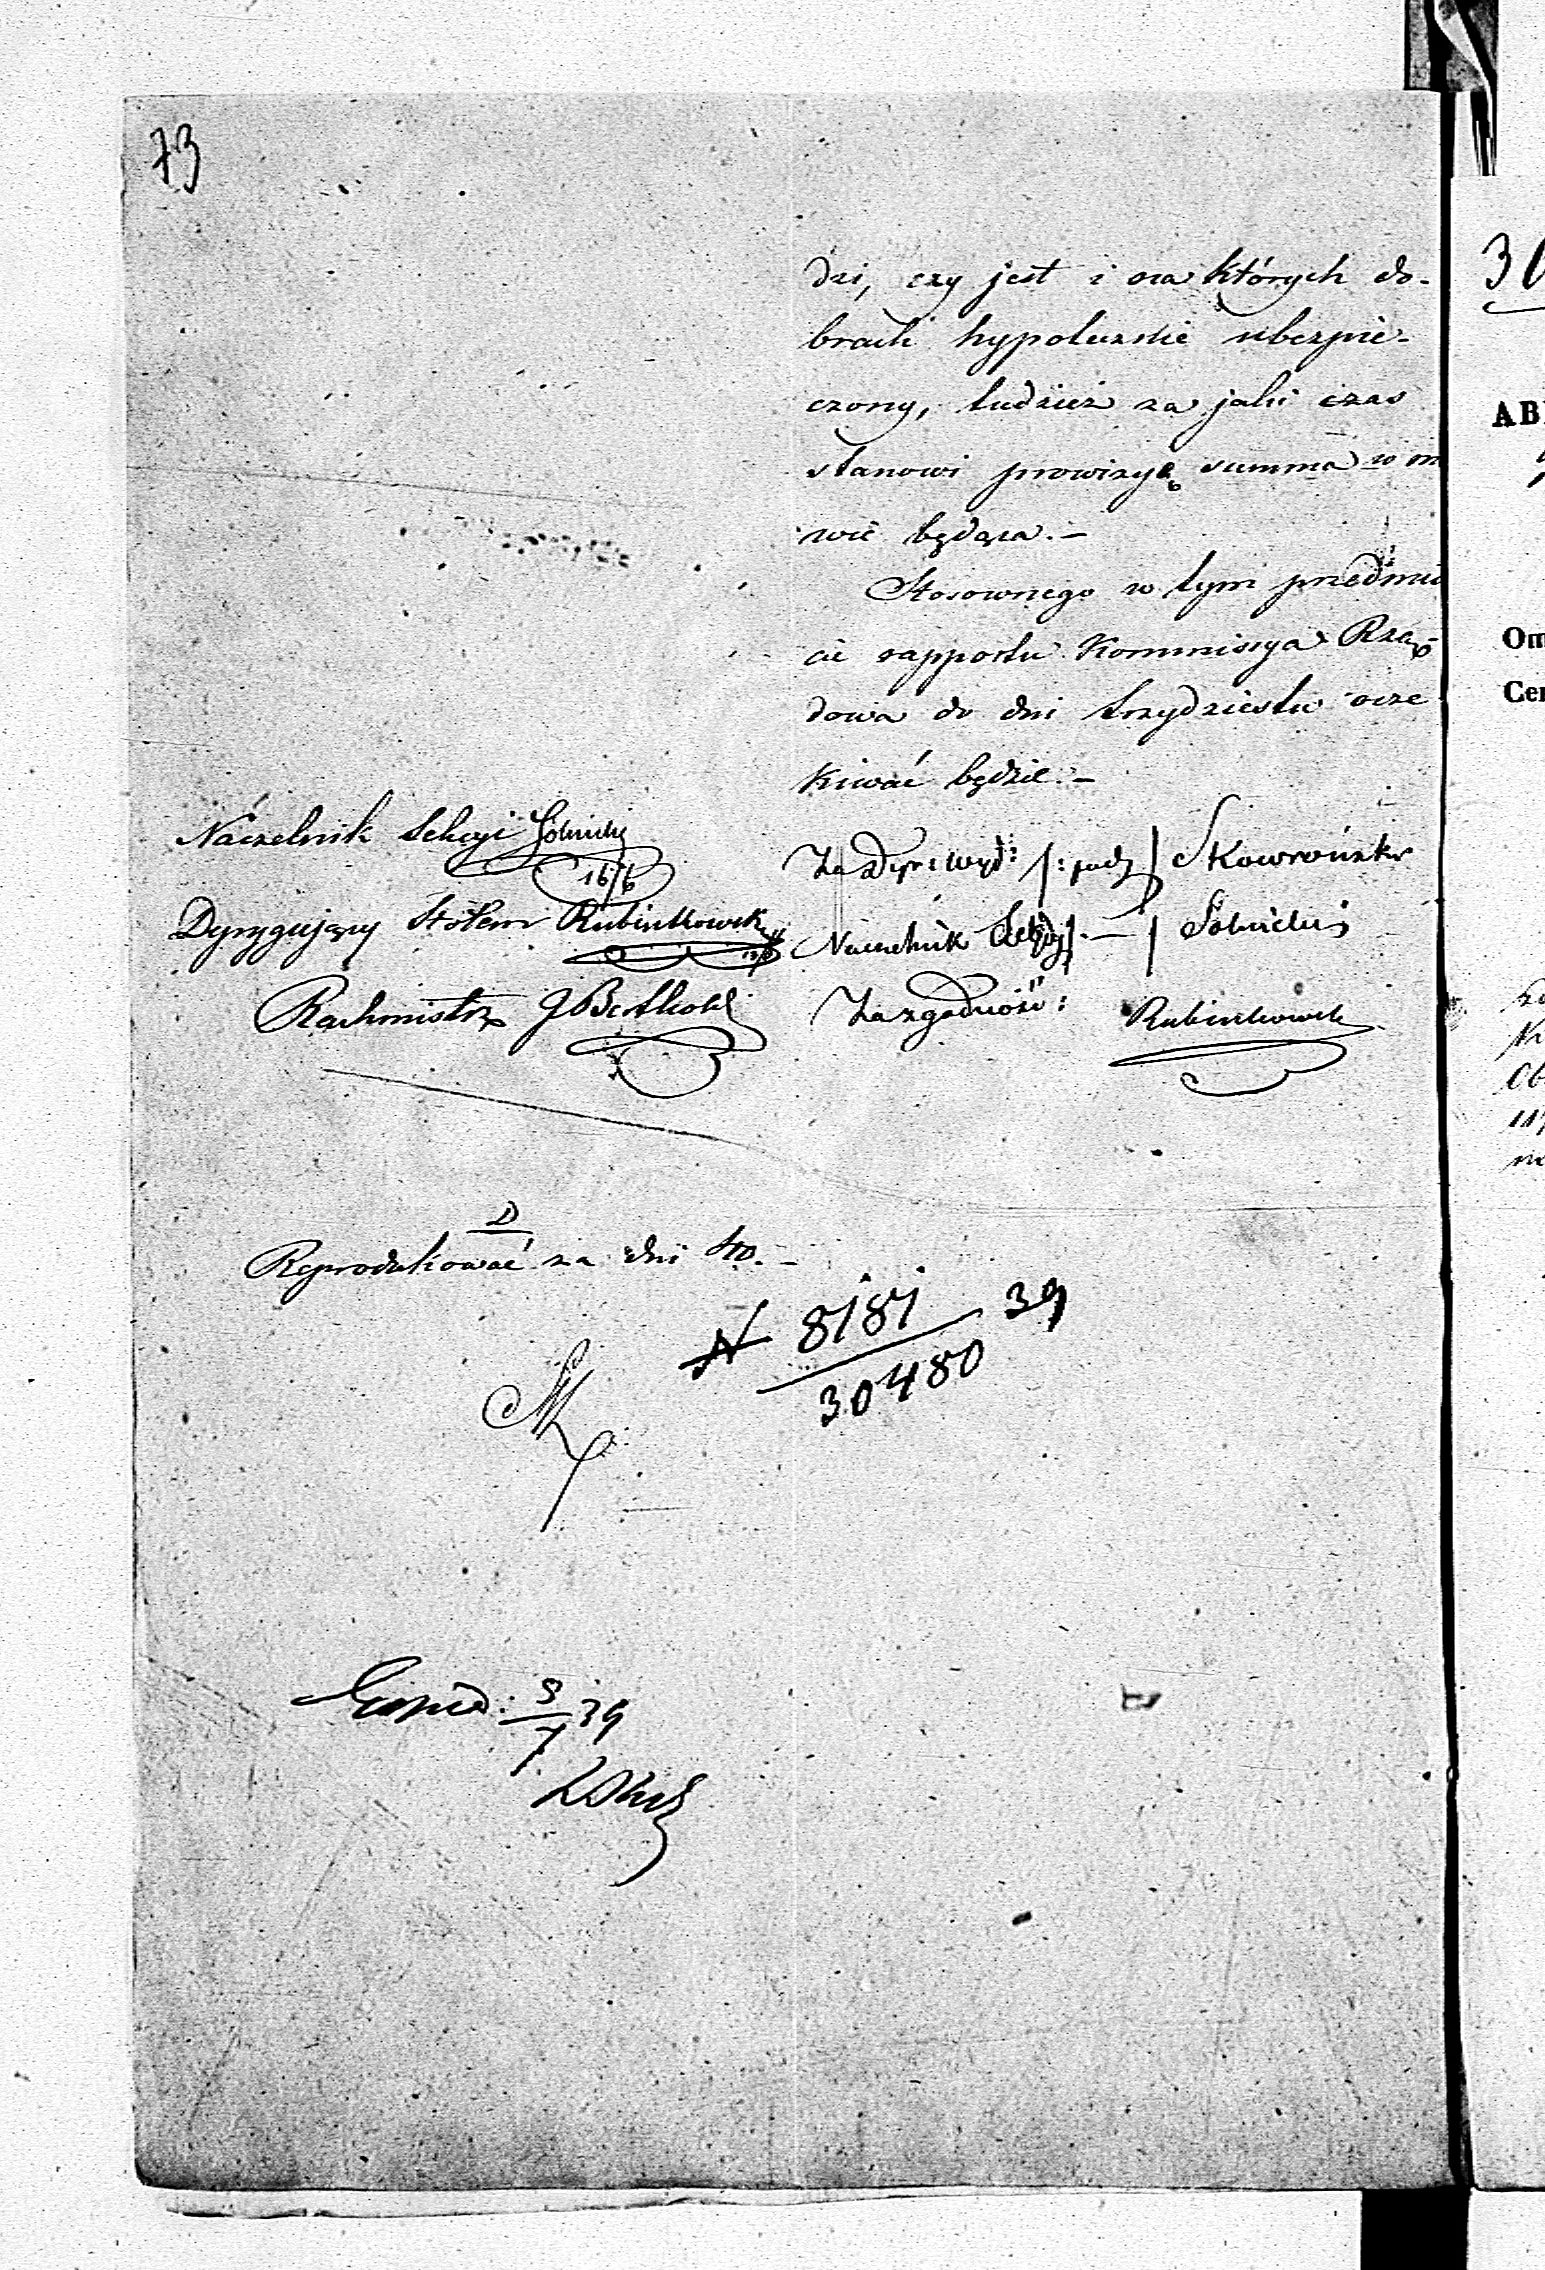 73
dzi, czy jest i na których do-
brach hypotecznie ubezpie-
czony, tudzież za jaki czas
stanowi prowizyę summa w m
wie będąca.-
Stosownego w tym przedmio
cie rapportu Kommissya Rzą-
dowa do dni trzydziestu ocze
kiwać będzie.-
Naczelnik Sekcyi
16/6
Dyrygujący Stołem Rubinkowski
Rachmistrz
Za Dyr: Wyd: /:podp/ Skowroński
Naczelnik Sekcyi /.—/
Za zgodność: Rubinkowski
D
Reprodukować za dni sto.-
N 8181/30480 39
39
30
AB
Om
Cer